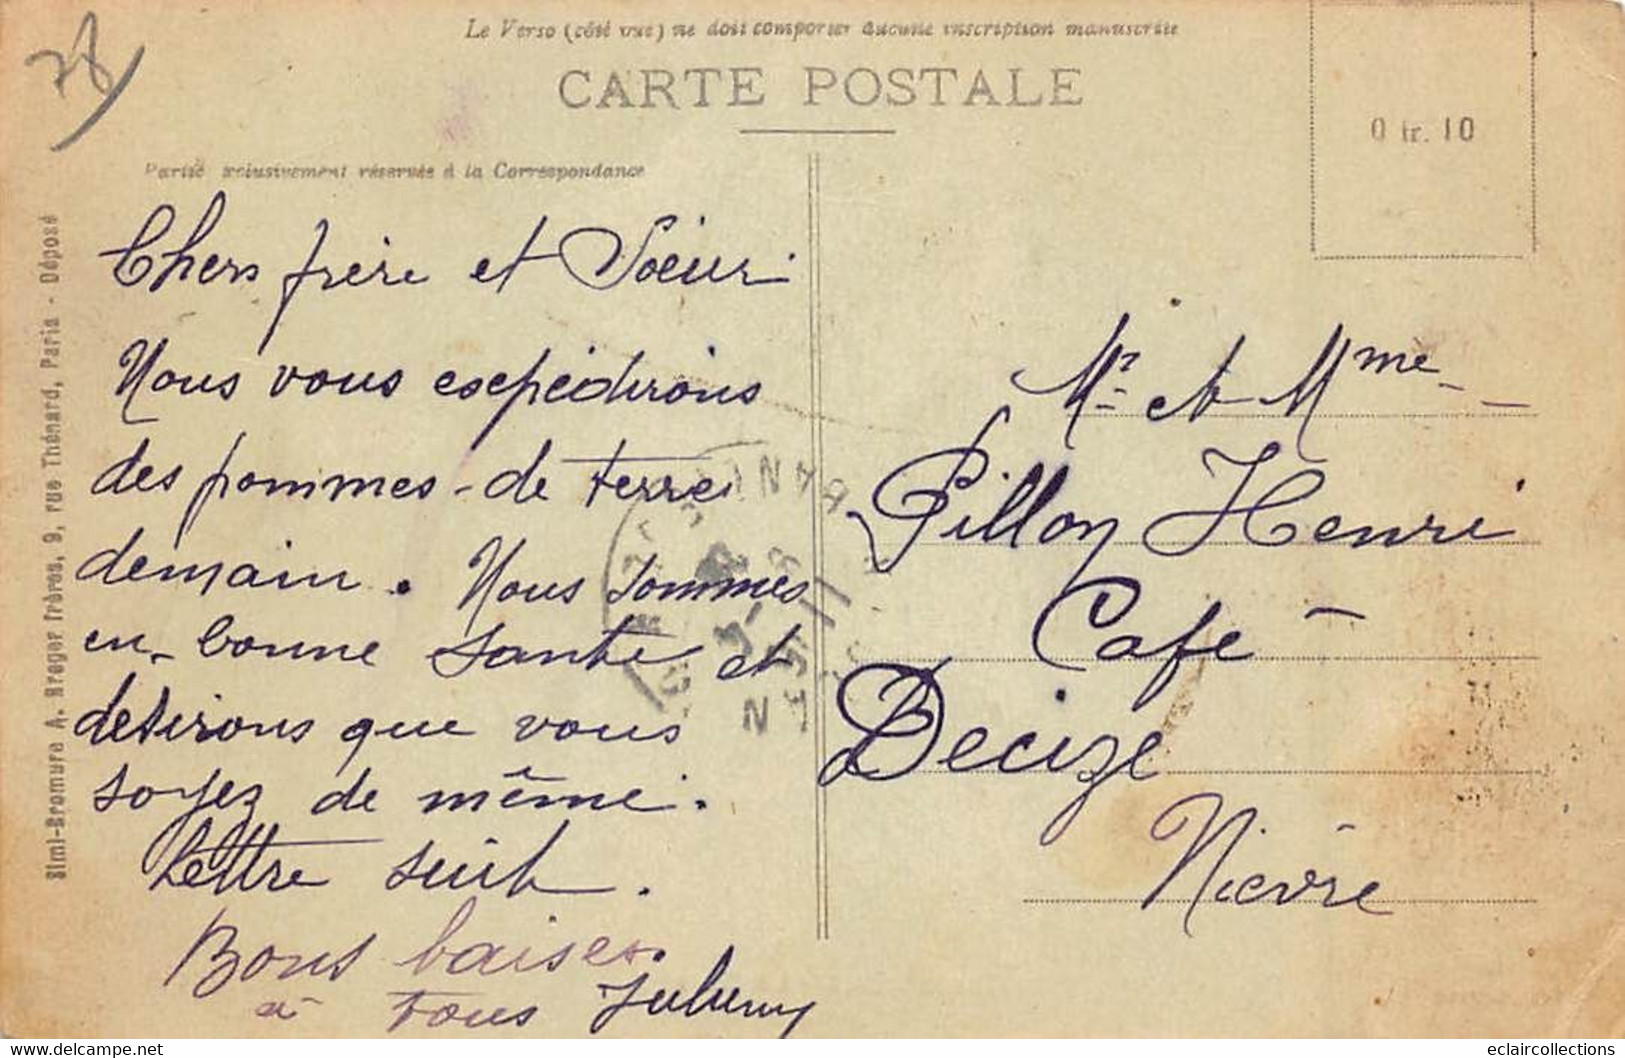 Le Verso (côté vue) ne doit comporter aucune inscription manuscrite
CARTE POSTALE
0 fr. 10
Partie exclusivement réservée à la Correspondance
78
Chers frère et Soeur
Nous vous expédirons
des pommes de terre
demain. Nous sommes
en bonne santé et
désirons que vous
soyez de même.
Lettre suit.
Bons baisers
à tous
Mr et Mme
Pillon Henri
Café
Decize
Nièvre
Simi-Bromure A. Breger frères, 9, rue Thénard, Paris - Déposé
www.delcampe.net
eclaircollections